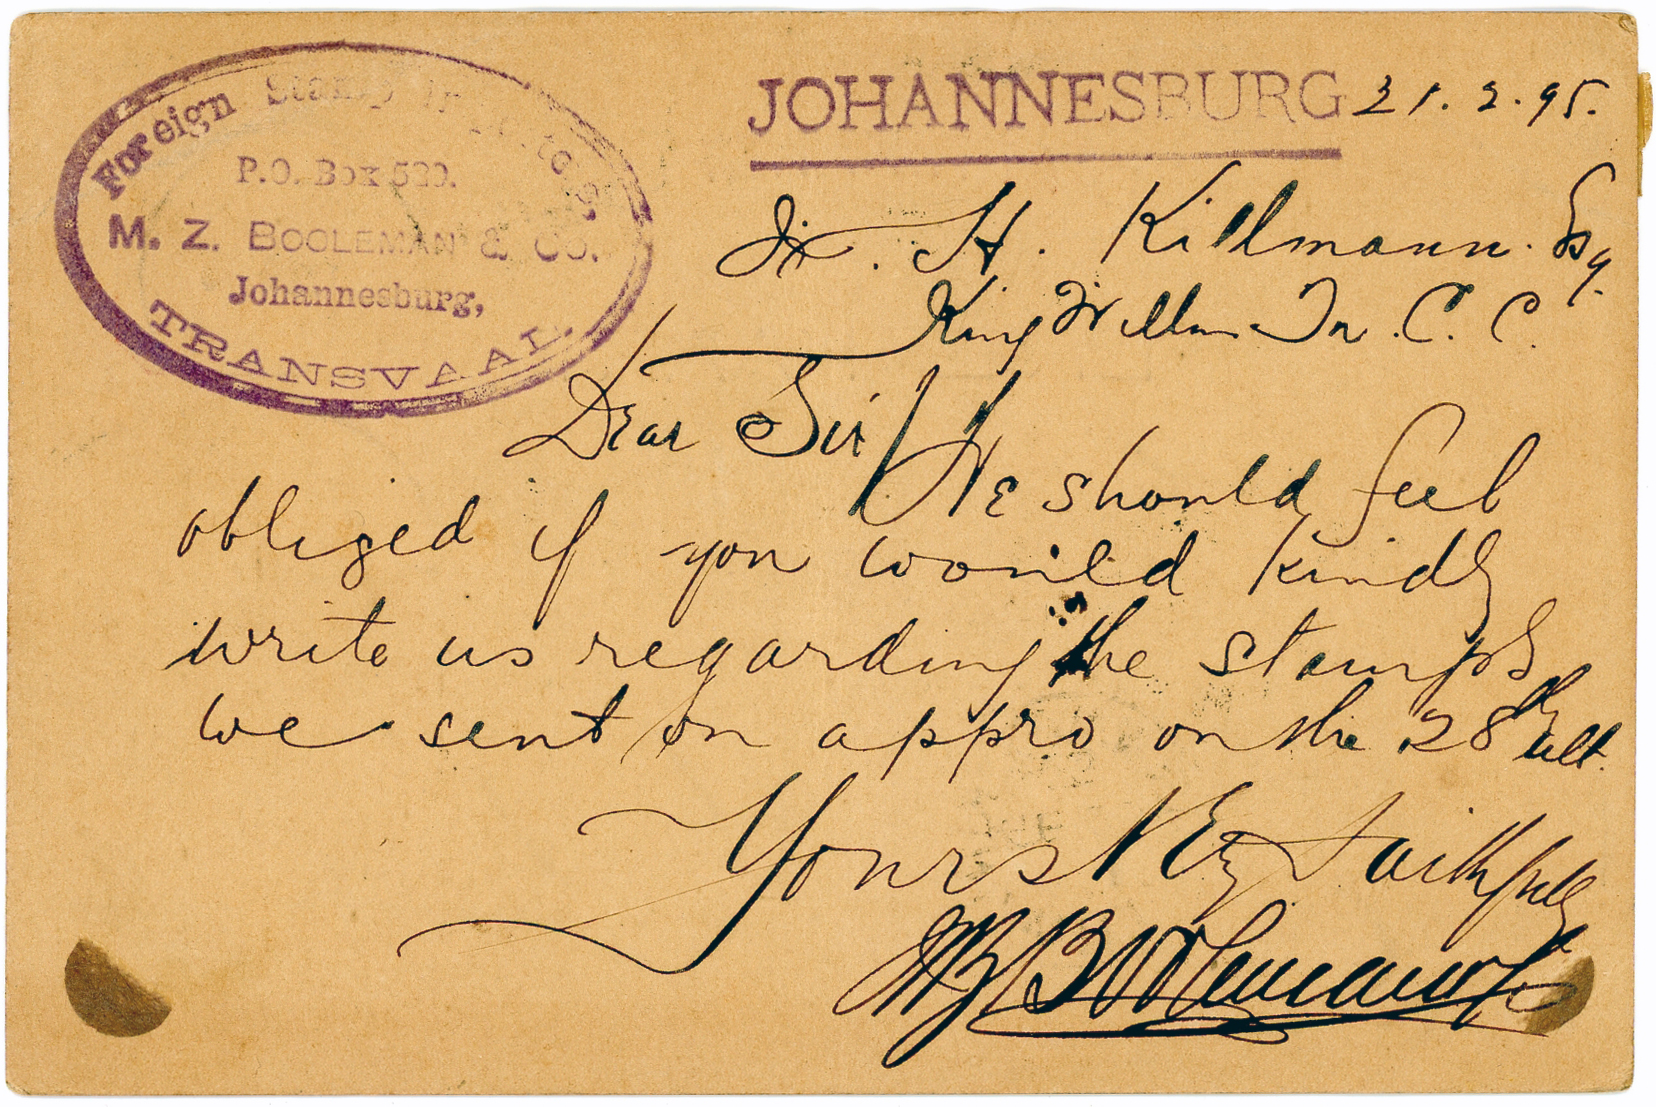 Foreign Stamp Importers
P.O. Box 520.
M. Z. BOOLEMAN & CO.
Johannesburg,
TRANSVAAL.
JOHANNESBURG 21.2.95.
H. Killmann Esq.
King Willm Tn. C. C.
Dear Sir/ We should feel
obliged if you would kindly
write us regarding the stamps
we sent on appro on the 28th ult.
Yours Vey faithfully
MZ Booleman & Co